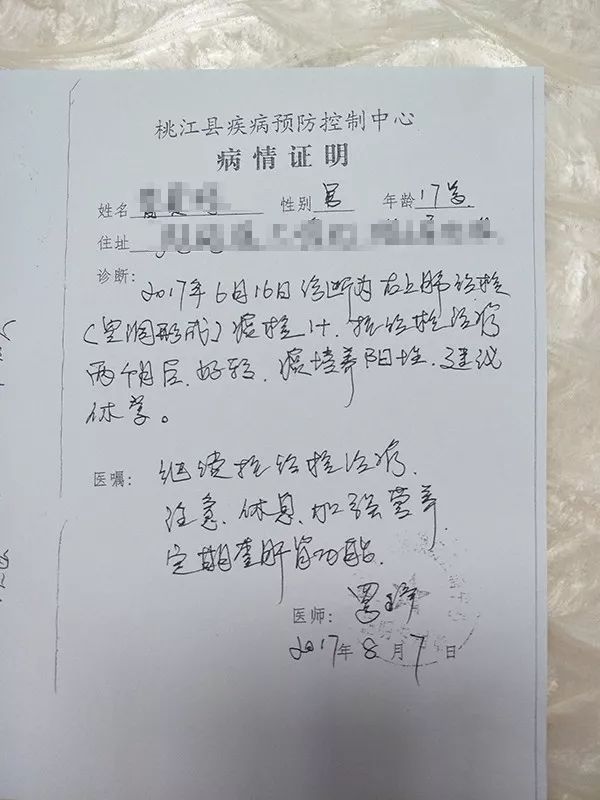 桃江县疾病预防控制中心
病情证明
姓名 性别 男 年龄 17岁
住址
诊断:
2017年6月16日诊断为右上肺结核
(空洞形成)痰检1+. 抗结核治疗
两个月后.好转.痰培养阳性.建议
休学。
医嘱: 继续抗结核治疗.
注意.休息.加强营养
定期查肝肾功能.
医师:
2017年8月7日